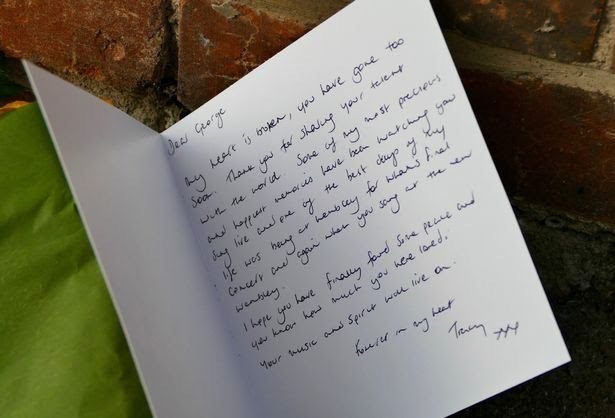 Dear George
My heart is broken, you have gone too
soon. Thank you for sharing your talent
with the world. Some of my most precious
and happiest memories have been watching you
sing live and one of the best days of my
life was being at wembley for wham's final
concert and again when you sang at the new
wembley.
I hope you have finally found some peace and
you know how much you were loved.
Your music and spirit will live on.
Forever in my heart
Tracey xxx